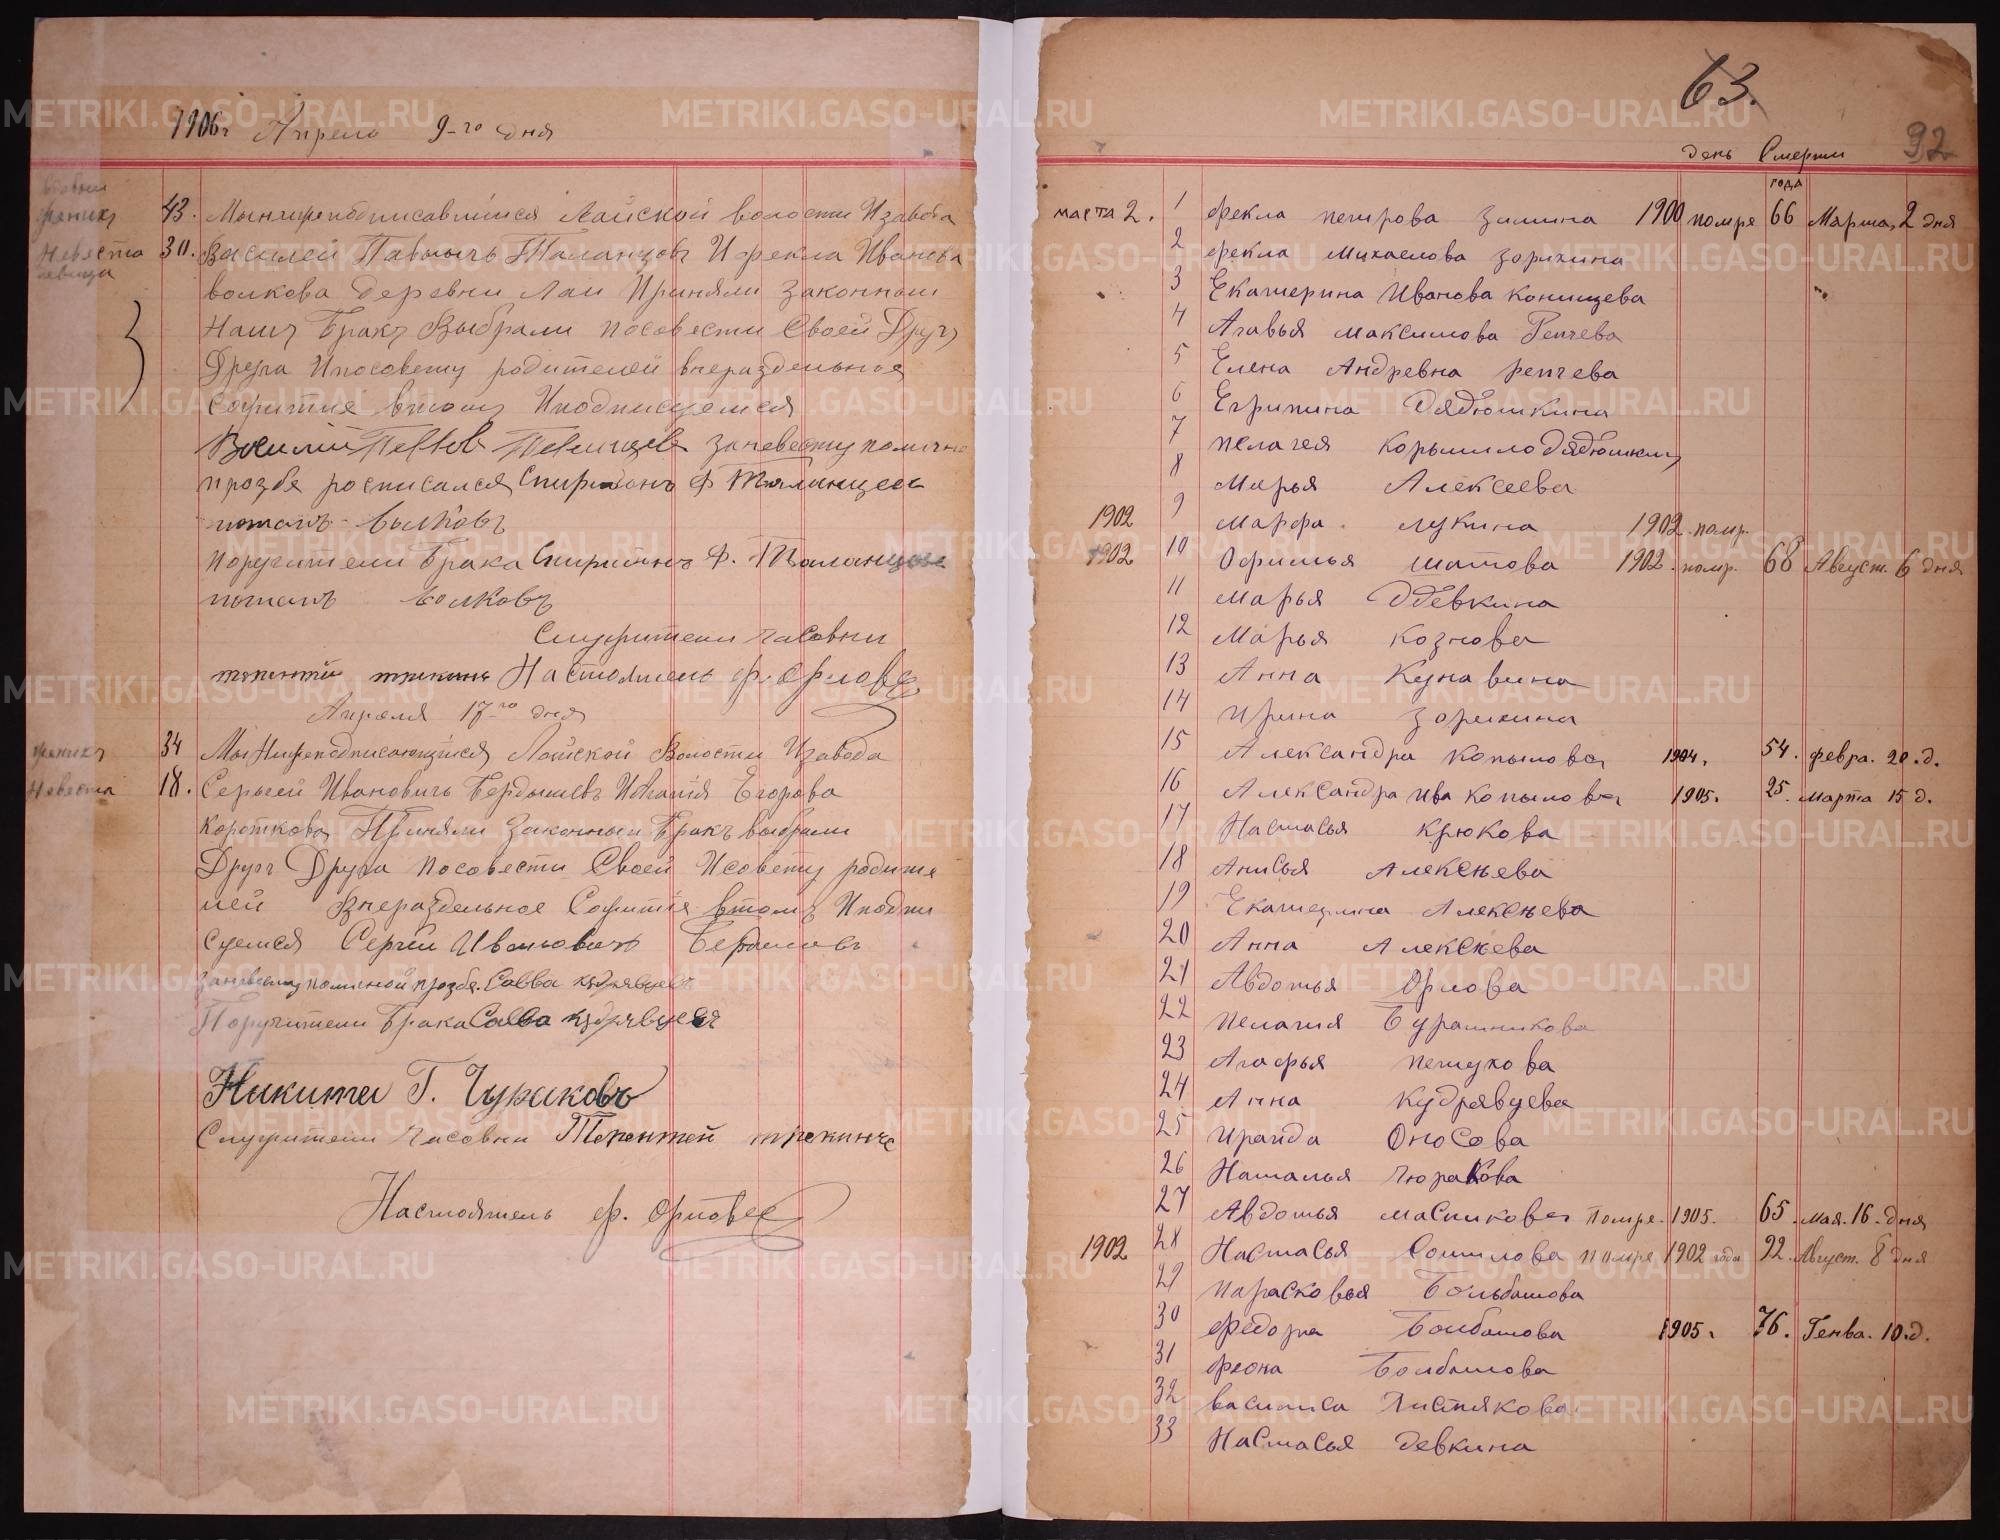 1906г Апрель 9-го дня
вдовый
жених 43. Мынижеподписавшийся Лайской волости Изавода
Невеста 30. Василей Павлычь Таланцовъ И фекла Иванова
девица волкова деревни Лаи Приняли Законный
Нашъ Бракъ Выбрали посовести Своей Другъ
Друга Ипосовету родителей внераздельное
Сожитие втомъ Иподписуемся
Василий заневесту поличной
прозбе росписался Спиридонъ Ф Таланцев
потапъ волковъ
поручители Брака Спиридонъ Ф. Таланцов
потапъ волковъ
Служители часовни
терентий трекинъ Настоятель ф. орловъ
Апреля 17-го дня
жених 34 МыНижеподписающийся Лайской Волости Изавода
Невеста 18. Сергей Ивановичь Бердышевъ Егорова
Короткова Приняли Законный Бракъ выбрали
Другъ Друга посовести Своей Исовету родите
лей Внераздельное Сожитiе втомъ Иподпи
суемся Сергей Ивановичь
заневесту поличной прозбе. Савва кудрявцевъ
Поручители Брака Савва кудрявцевъ
Никита Г. Чураковъ
Служители часовни Терентей трекинъ
Настоятель ф. орловъ
63.
92
день Смерти
года
марта 2. 1 фекла петрова зимина 1900 помре 66 Марта, 2 дня
2 фекла михаелова зорихина
3 Екатерина Иванова конищева
4 Агавья максимова Репчева
5 Елена Андревна репчева
6 Егрипина Дядюшкина
7 пелагея Дядюшкину
8 Марья Алексеева
1902 9 марфа. лукина 1902. помр.
1902 10 Офимья шатова 1902. помр. 68 Август. 6 дня
11 марья Девкина
12 Марья козлова
13 Анна Кунавина
14 ирина зорихина
15 Александра Копылова 1904. 54. февра. 20. д.
16 Александра ива копылова 1905. 25. марта 15 д.
17 Настасья крюкова
18 Анисья Алексѣева
19 Екатерина Алексѣева
20 Анна Алексѣева
21 Авдотья Орлова
22 пелагия Бурашникова
23 Агафья петухова
24 Анна кудрявцева
25 ираида Оносова
26 Наталья чюракова
27 Авдотья масликова Помре. 1905. 65. мая. 16. дня
1902 28 Настасья помре 1902 года 92. Август. 8 дня
29 парасковья Больбатова
30 федора Болбатова 1905. 76. Генва. 10. д.
31 феона Болбатова
32 васлиса
33 Настасья девкина